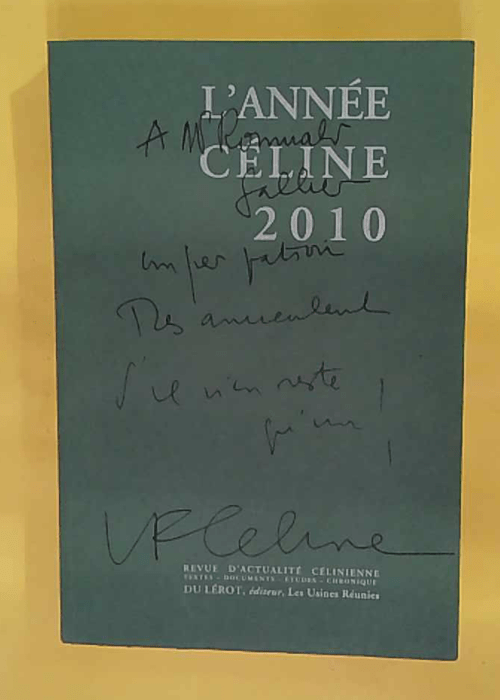 L'ANNÉE
A Mr Romuald
CÉLINE
Gallier
2010
un peu patron
Très amicalement
S'il n'en reste
qu'un !
LF Celine
REVUE D'ACTUALITÉ CÉLINIENNE
TEXTES - DOCUMENTS - ÉTUDES - CHRONIQUE
DU LÉROT, éditeur, Les Usines Réunies